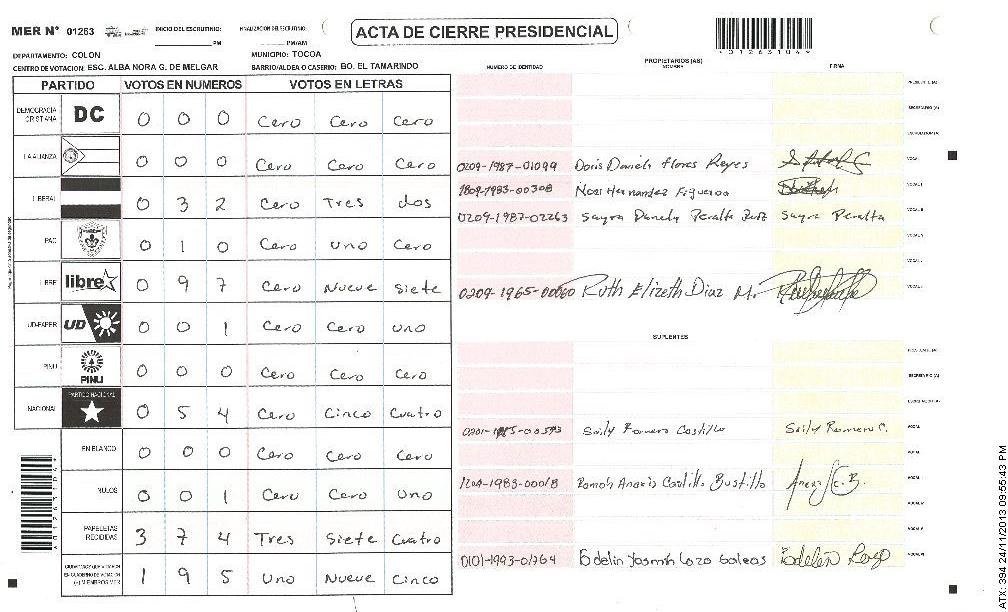 MER Nº 01263 INICIO DEL ESCRUTINIO: PM FINALIZACION DEL ESCRUTINIO: PM/AM
ACTA DE CIERRE PRESIDENCIAL
DEPARTAMENTO: COLON MUNICIPIO: TOCOA
CENTRO DE VOTACION: ESC. ALBA NORA G. DE MELGAR BARRIO/ALDEA O CASERIO: BO. EL TAMARINDO
PARTIDO VOTOS EN NUMEROS VOTOS EN LETRAS
DEMOCRACIA CRISTIANA DC 0 0 0 Cero Cero Cero
LA ALIANZA 0 0 0 Cero Cero Cero
LIBERAL 0 3 2 Cero Tres dos
PAC 0 1 0 Cero uno Cero
LIBRE libre 0 9 7 Cero Nueve Siete
UD-FAPER UD 0 0 1 Cero Cero uno
PINU PINU 0 0 0 Cero Cero Cero
NACIONAL PARTIDO NACIONAL 0 5 4 Cero Cinco Cuatro
EN BLANCO 0 0 0 Cero Cero Cero
NULOS 0 0 1 Cero Cero Uno
PAPELETAS RECIBIDAS 3 7 4 Tres Siete Cuatro
1 9 5 Uno Nueve Cinco
NUMERO DE IDENTIDAD PROPIETARIOS (AS) NOMBRE FIRMA
PRESIDENTE (A)
SECRETARIO (A)
ESCRUTADOR (A)
0209-1987-01099 Doris Daniela Flores Reyes
1809-1983-00308 Noel Hernandez Figueroa
0209-1987-02263 Sayra Daniela Peralta Sayra Peralta
0209-1965-00060 Ruth Elizeth Diaz M.
SUPLENTES
PRESIDENTE (A)
SECRETARIO (A)
ESCRUTADOR (A)
Saily Romero Castillo Saily Romero C. VOCAL
VOCAL
1204-1983-00018 Ramon Castillo Bustillo VOCAL
0101-1993-01764 Yasmin Lozo
ATX: 394 24/11/2013 09:55:43 PM